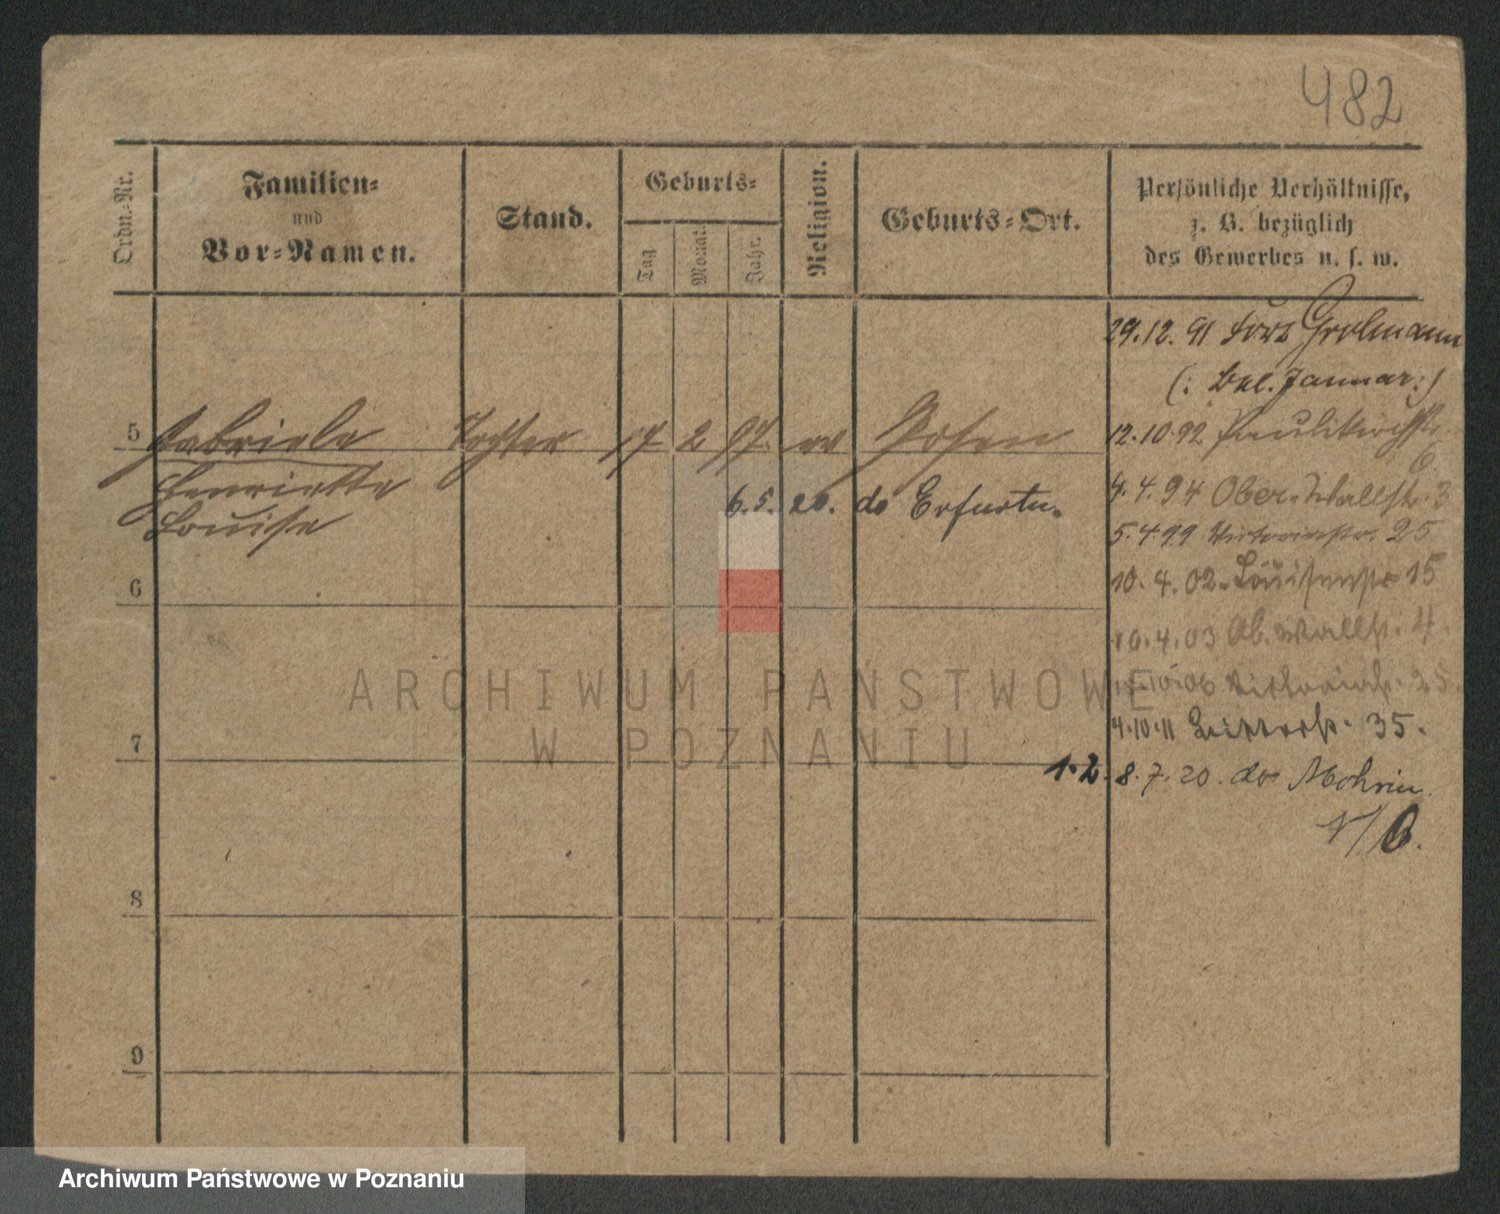 482
Ordn.-Nr.
Familien-
und
Vor-Namen.
Stand.
Geburts-
Tag
Monat.
Jahr.
Religion.
Geburts-Ort.
Persönliche Verhältnisse,
z. B. bezüglich
des Gewerbes u. s. w.
29.12.91 Fort Grolmann
(: Januar :)
5 Gabriele Tochter 17 2 97. ev Posen
Henriette
Louise
6.5.20. do Erfurtu.
12.10.92 Paulikirchstr. 6
4.4.94 Ober-Wallstr. 3
5.4.99 Victoriastr. 25
10.4.02. Louisenstr 15
10.4.03 Ob. Wallstr. 4.
10.06 Victoriastr. 25
4.10.11 35.
1.2. 8.7.20. do Mohrin.
6
7
8
9
ARCHIWUM PAŃSTWOWE
W POZNANIU
Archiwum Państwowe w Poznaniu